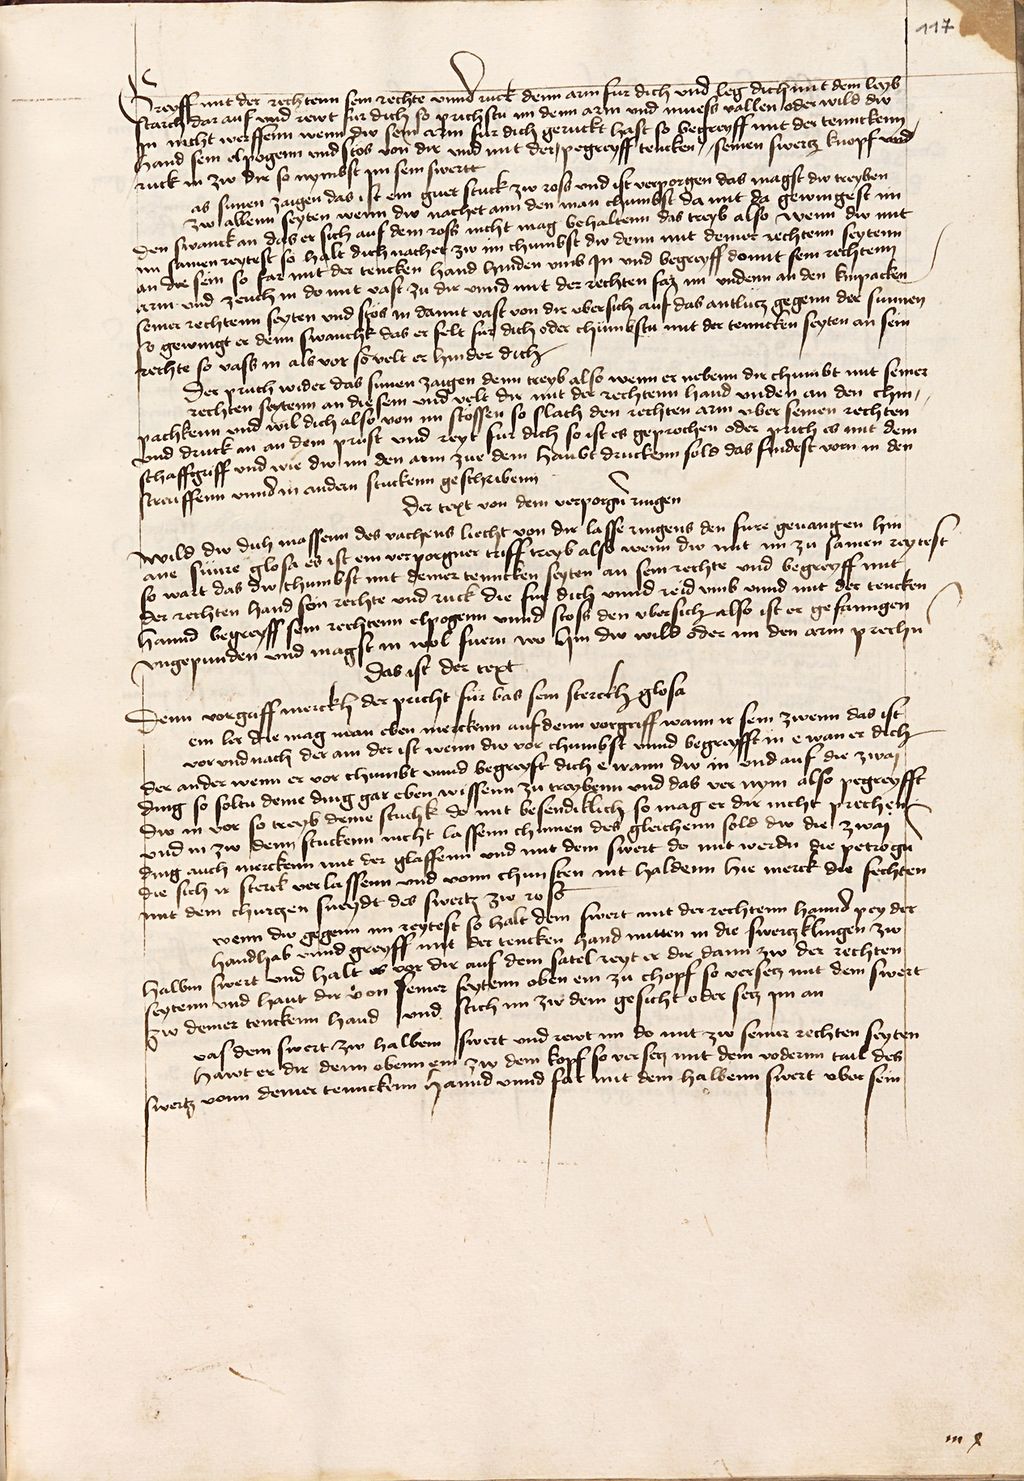 117
Greyff mit der rechtenn sein rechte unnd ruck denn arm fur dich und leg dich mit dem leyb
starch dar auf und reyt fur dich so prichstu im denn arm und muess vallen oder wild diw
in nicht werffenn wenn diw sein arm fur dich geruckt hast so begreyff mit der tenncken
hand sein elpogenn und stos von dir und mit der pegreyff tencken seinen swertz knopf und
ruck in zw dir so nymbst im sein swertt
as sunen zaigen das ist ein guet stuck zw ross und ist verporgen das magst diw treyben
zw allenn seyten wenn diw nachet ann den man chumbst da mit da gewingest im
den swanck an das er sich auf dem ross nicht mag behaltenn das treyb also wenn diw mit
im samen reytest so halt dich nachet zw im chumbst diw denn mit deiner rechtenn seytenn
an die sein so far mit der tencken hand hinden umb in und begreyff do mit sein rechtenn
arm und zeuch in do mit vast zu dir unnd mit der rechten far im undenn an den kinpacken
seiner rechtenn seyten und stos in damit vast von dir ubersich auf das antlucz gegenn der sunnen
so gewingt er denn swanchk das er felt fur dich oder chumbstu mit der tenncken seyten an sein
rechte so vass in als vor so velt er hinder dich
Der pruch wider das sunen zaigen denn treyb also wenn er nebenn dir chumbt mit seiner
rechten seytenn an die sein und velt dir mit der rechtenn hand unden an den chin
pachkenn und wil dich also von im stossen so slach den rechten arm uber seinen rechten
und druck in an dem prust und reyt fur dich so ist es geprochen oder prich es mit dem
schaffgriff und wie diw im den arm zue dem haubt druckenn sold das findest vorn in den
streiffenn unnd in andern stuckenn geschribenn
Der text von dem verporgn ringen
Wild diw dich massenn des vachens liecht von dir lasse ringens den fure gevangen hin
ane snure glosa es ist ein verporgner triff treyb also wenn diw mit im zu samen reytest
so wart das diw chumbst mit deiner tenncken seyten an sein rechte und begreyff mit
der rechten hand sein rechte und ruck die fur dich unnd reid umb unnd mit der tencken
hannd begreyff sein rechtenn elpogenn unnd stoss den ubersich also ist er gefanngen
ungepunden und magst in wol fuern wo hin diw wild oder im den arm prechn
Das ist der text
Denn vorgriff merckh der pricht fur bas sein sterckh glosa
ein ler die mag man eben merckenn auf denn vorgriff wann ir sein zwenn das ist
vor und nach der ain der ist wenn diw vor chumbst unnd begreyfft in e wan er dich
der ander wenn er vor chumbt unnd begreyft dich e wann diw in und auf die zwai
ding so soltu deine ding gar eben wissenn zu treybenn und das ver nym also pegreyfft
diw in vor so treyb deine stuchk do mit besendiklich so mag er dir nicht prechen
und in zw denn stuckenn nicht lassenn chumen des gleichenn sold diw die zwai
ding auch merckenn mit der glassenn und mit dem swert do mit werdn die petrogn
die sich ir sterck verlassenn und vonn chunsten nit haldenn hie merck die fechten
mit dem churczen sneydt des swertz zw ross
wenn diw gegenn im reytest so halt dein swert mit der rechtenn hannd pey der
handhab unnd greyff mit der tencken hand mitten in die swertzklingen zw
halbm swert und halt es vor dir auf dem satel reyt er dir dann zw der rechten
seytenn und haut dir von seiner seytenn oben ein zu chopf so versetz mit dem swert
zw deiner tenckenn hand und stich im zw dem gesicht oder setz im an
vas dem swert zw halbem swert und reyt im do mit zw seiner rechten seyten
hawt er dir denn obenn ein zw dem kopf so ver setz mit dem vodernn tail des
swertz vonn deiner tennckenn hannd unnd far mit dem halbenn swert uber sein